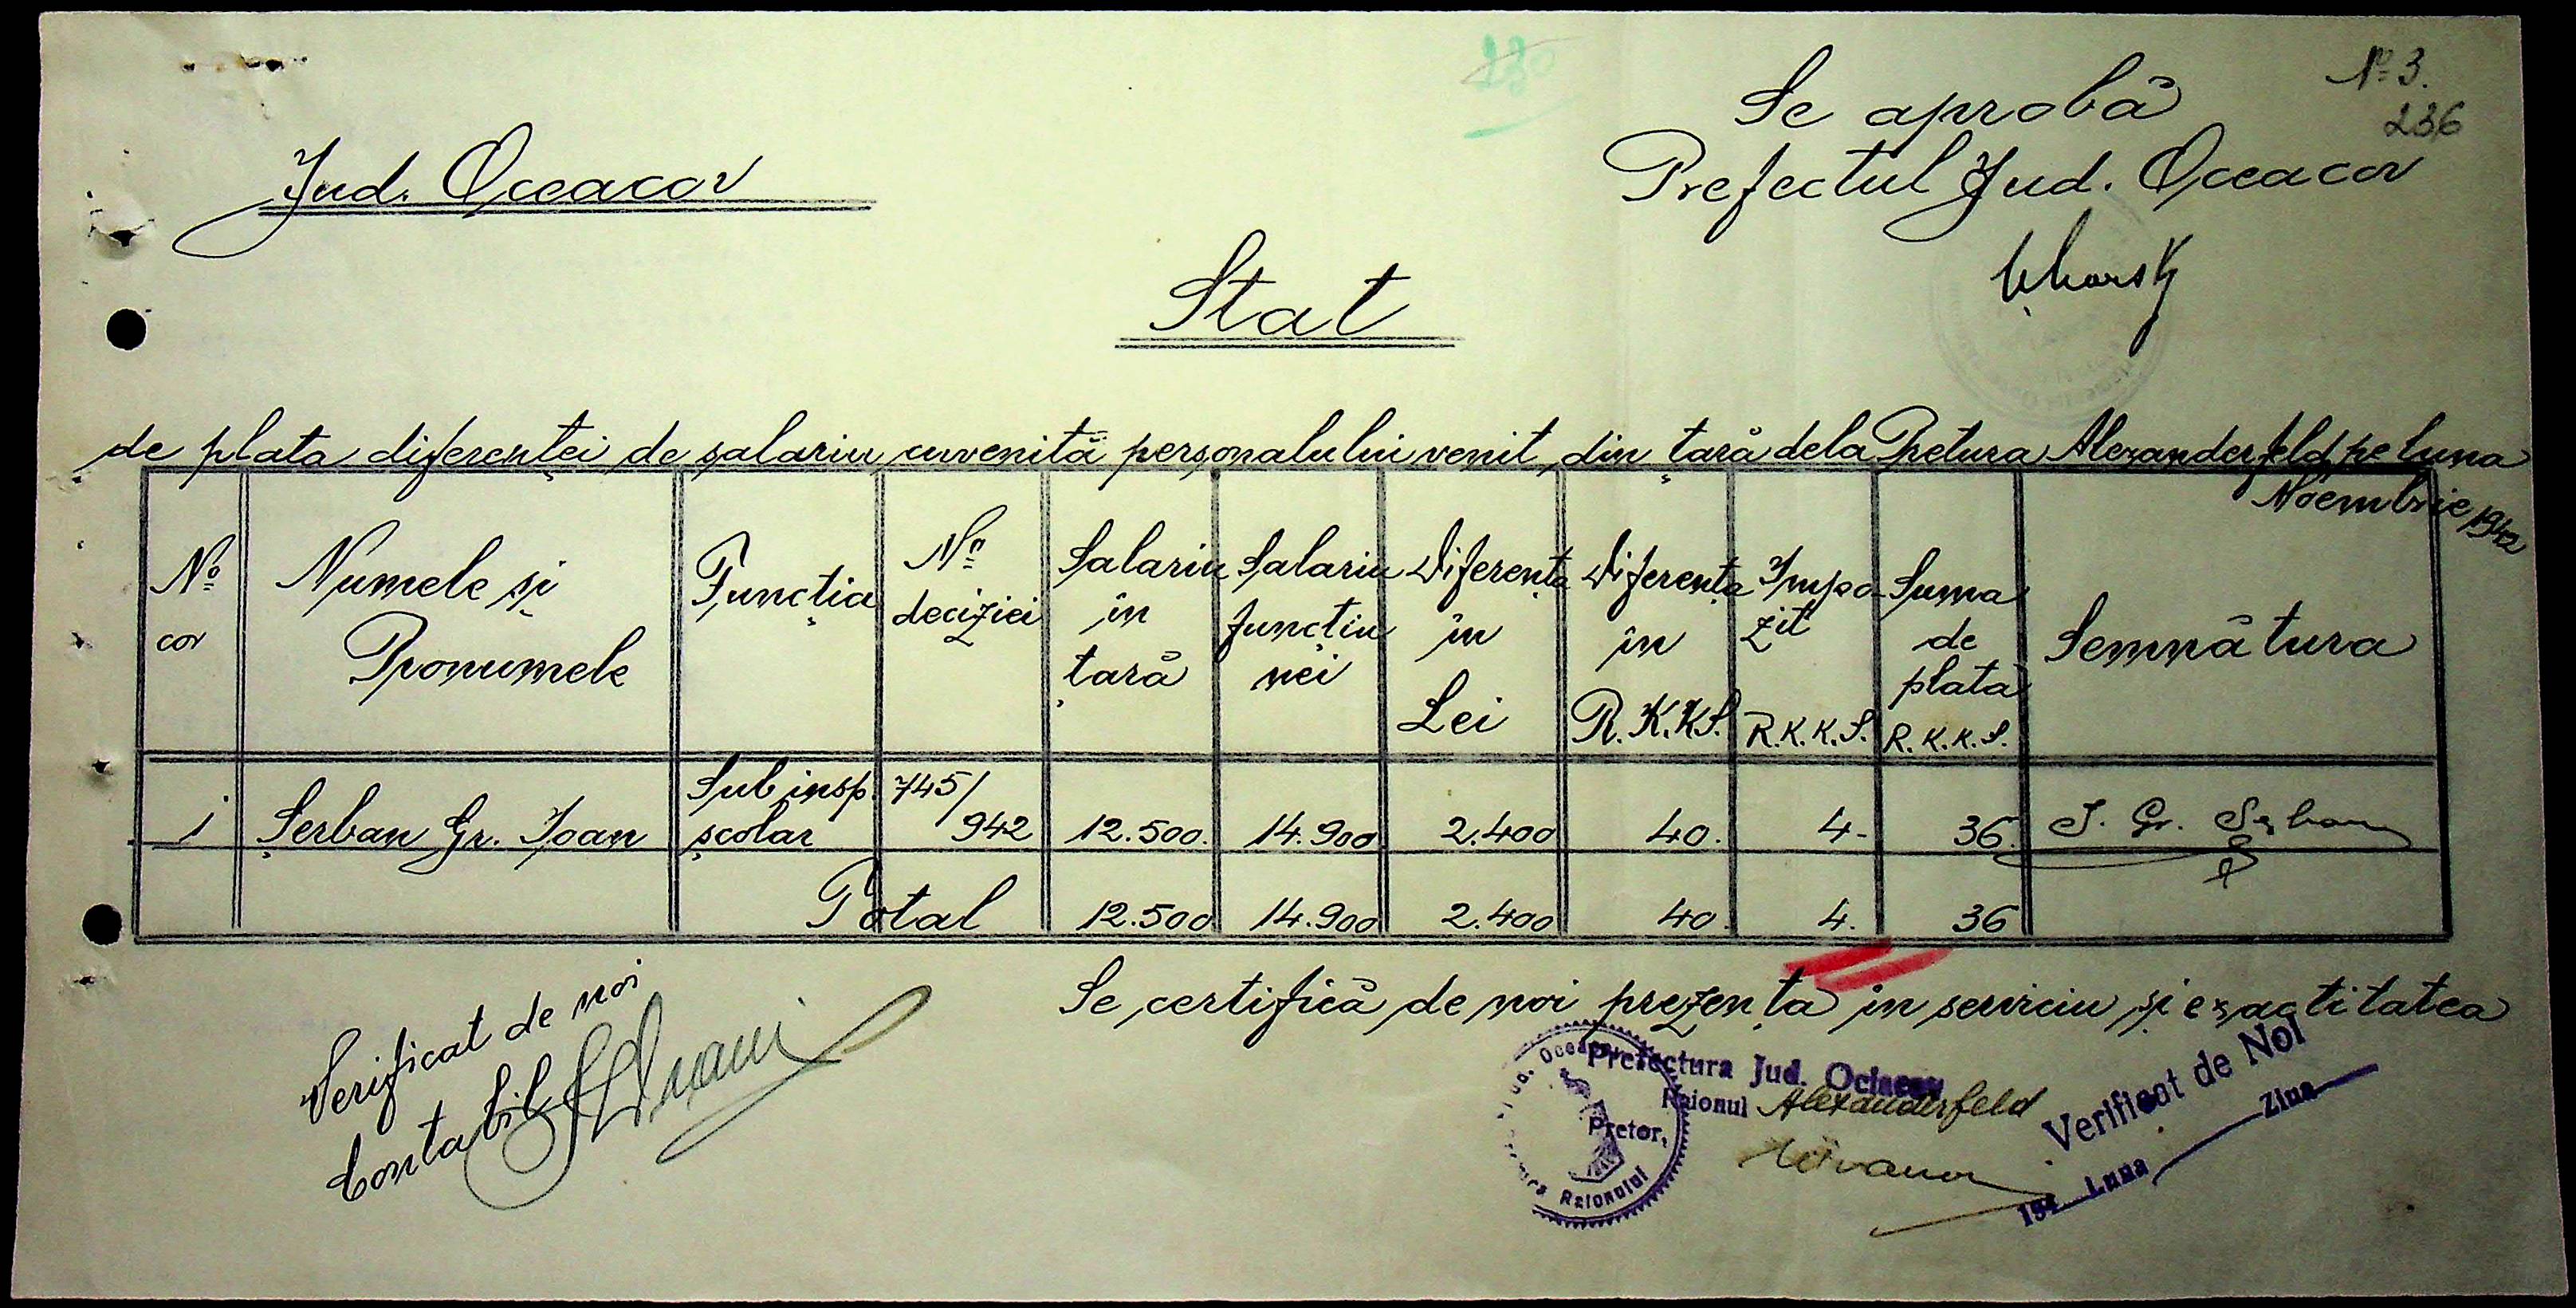 130
No 3.
236
Jud. Oceacov
Se aprobă
Prefectul Jud. Oceacov
Stat
de plata diferenței de salariu cuvenită personalului venit din țară dela Pretura Alexanderfeld pe luna
Noembrie 1942
No cor
Numele și Pronumele
Funcția
No deciziei
Salariu în țară
Salariu funcțiunei
Diferența în Lei
Diferența în R.K.K.S.
Impozit R.K.K.S.
Suma de plată R.K.K.S.
Semnătura
1 Șerban Gr. Ioan Sub insp. școlar 745/942 12.500. 14.900 2.400 40. 4- 36. I. Gr. Șerban
Total 12.500 14.900 2.400 40. 4. 36
Se certifică de noi prezența in serviciu și exactitatea
Verificat de noi
Contabil
Prefectura Jud. Oceacov
Raionul Alexanderfeld
Pretor,
Raionului
Verificat de Noi
194 Luna Ziua